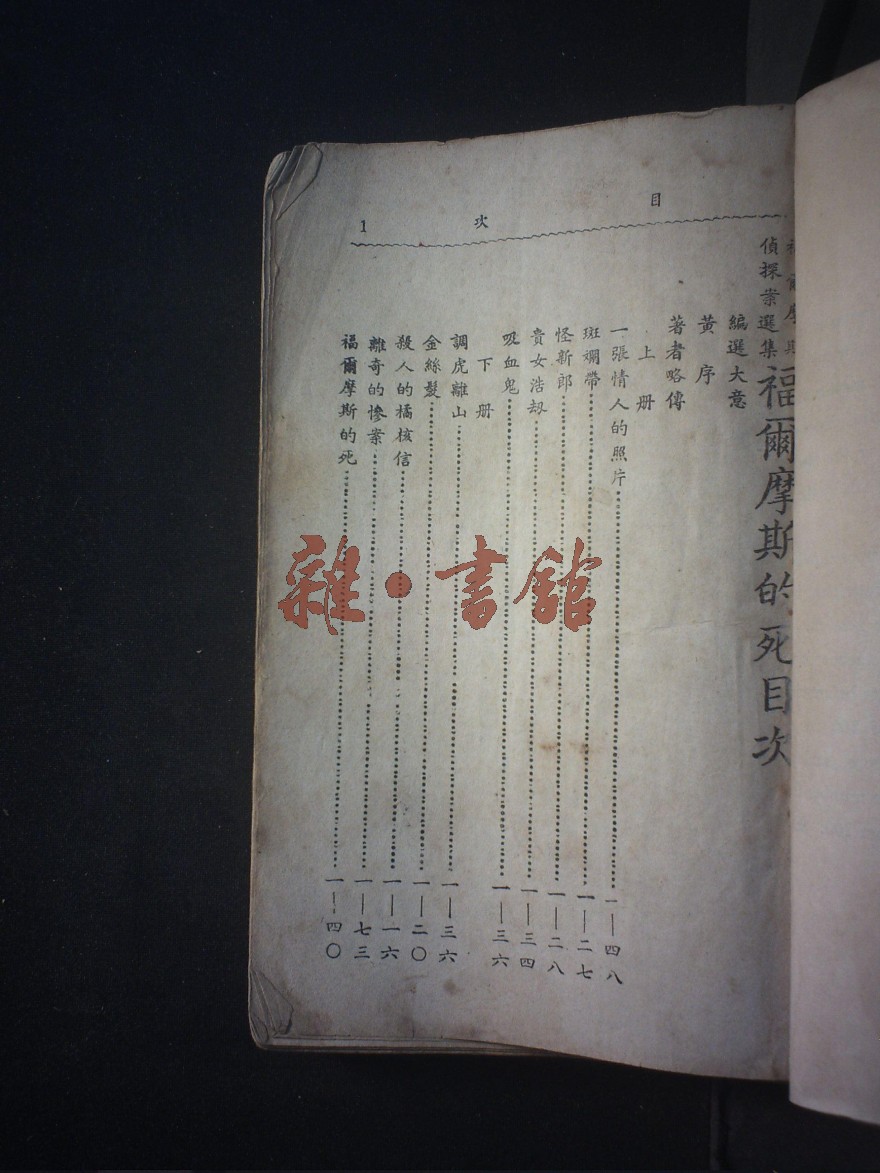 目次
1
福爾摩斯
偵探案選集
福爾摩斯的死目次
編選大意
黃序
著者略傳
上册
一張情人的照片……一—四八
斑斕帶……一—二七
怪新郎……一—二八
貴女浩劫……一—三四
吸血鬼……一—三六
下册
調虎離山……一—三六
金絲髮……一—二〇
殺人的橘核信……一—一六
離奇的慘案……一—七三
福爾摩斯的死……一—四〇
雜·書館